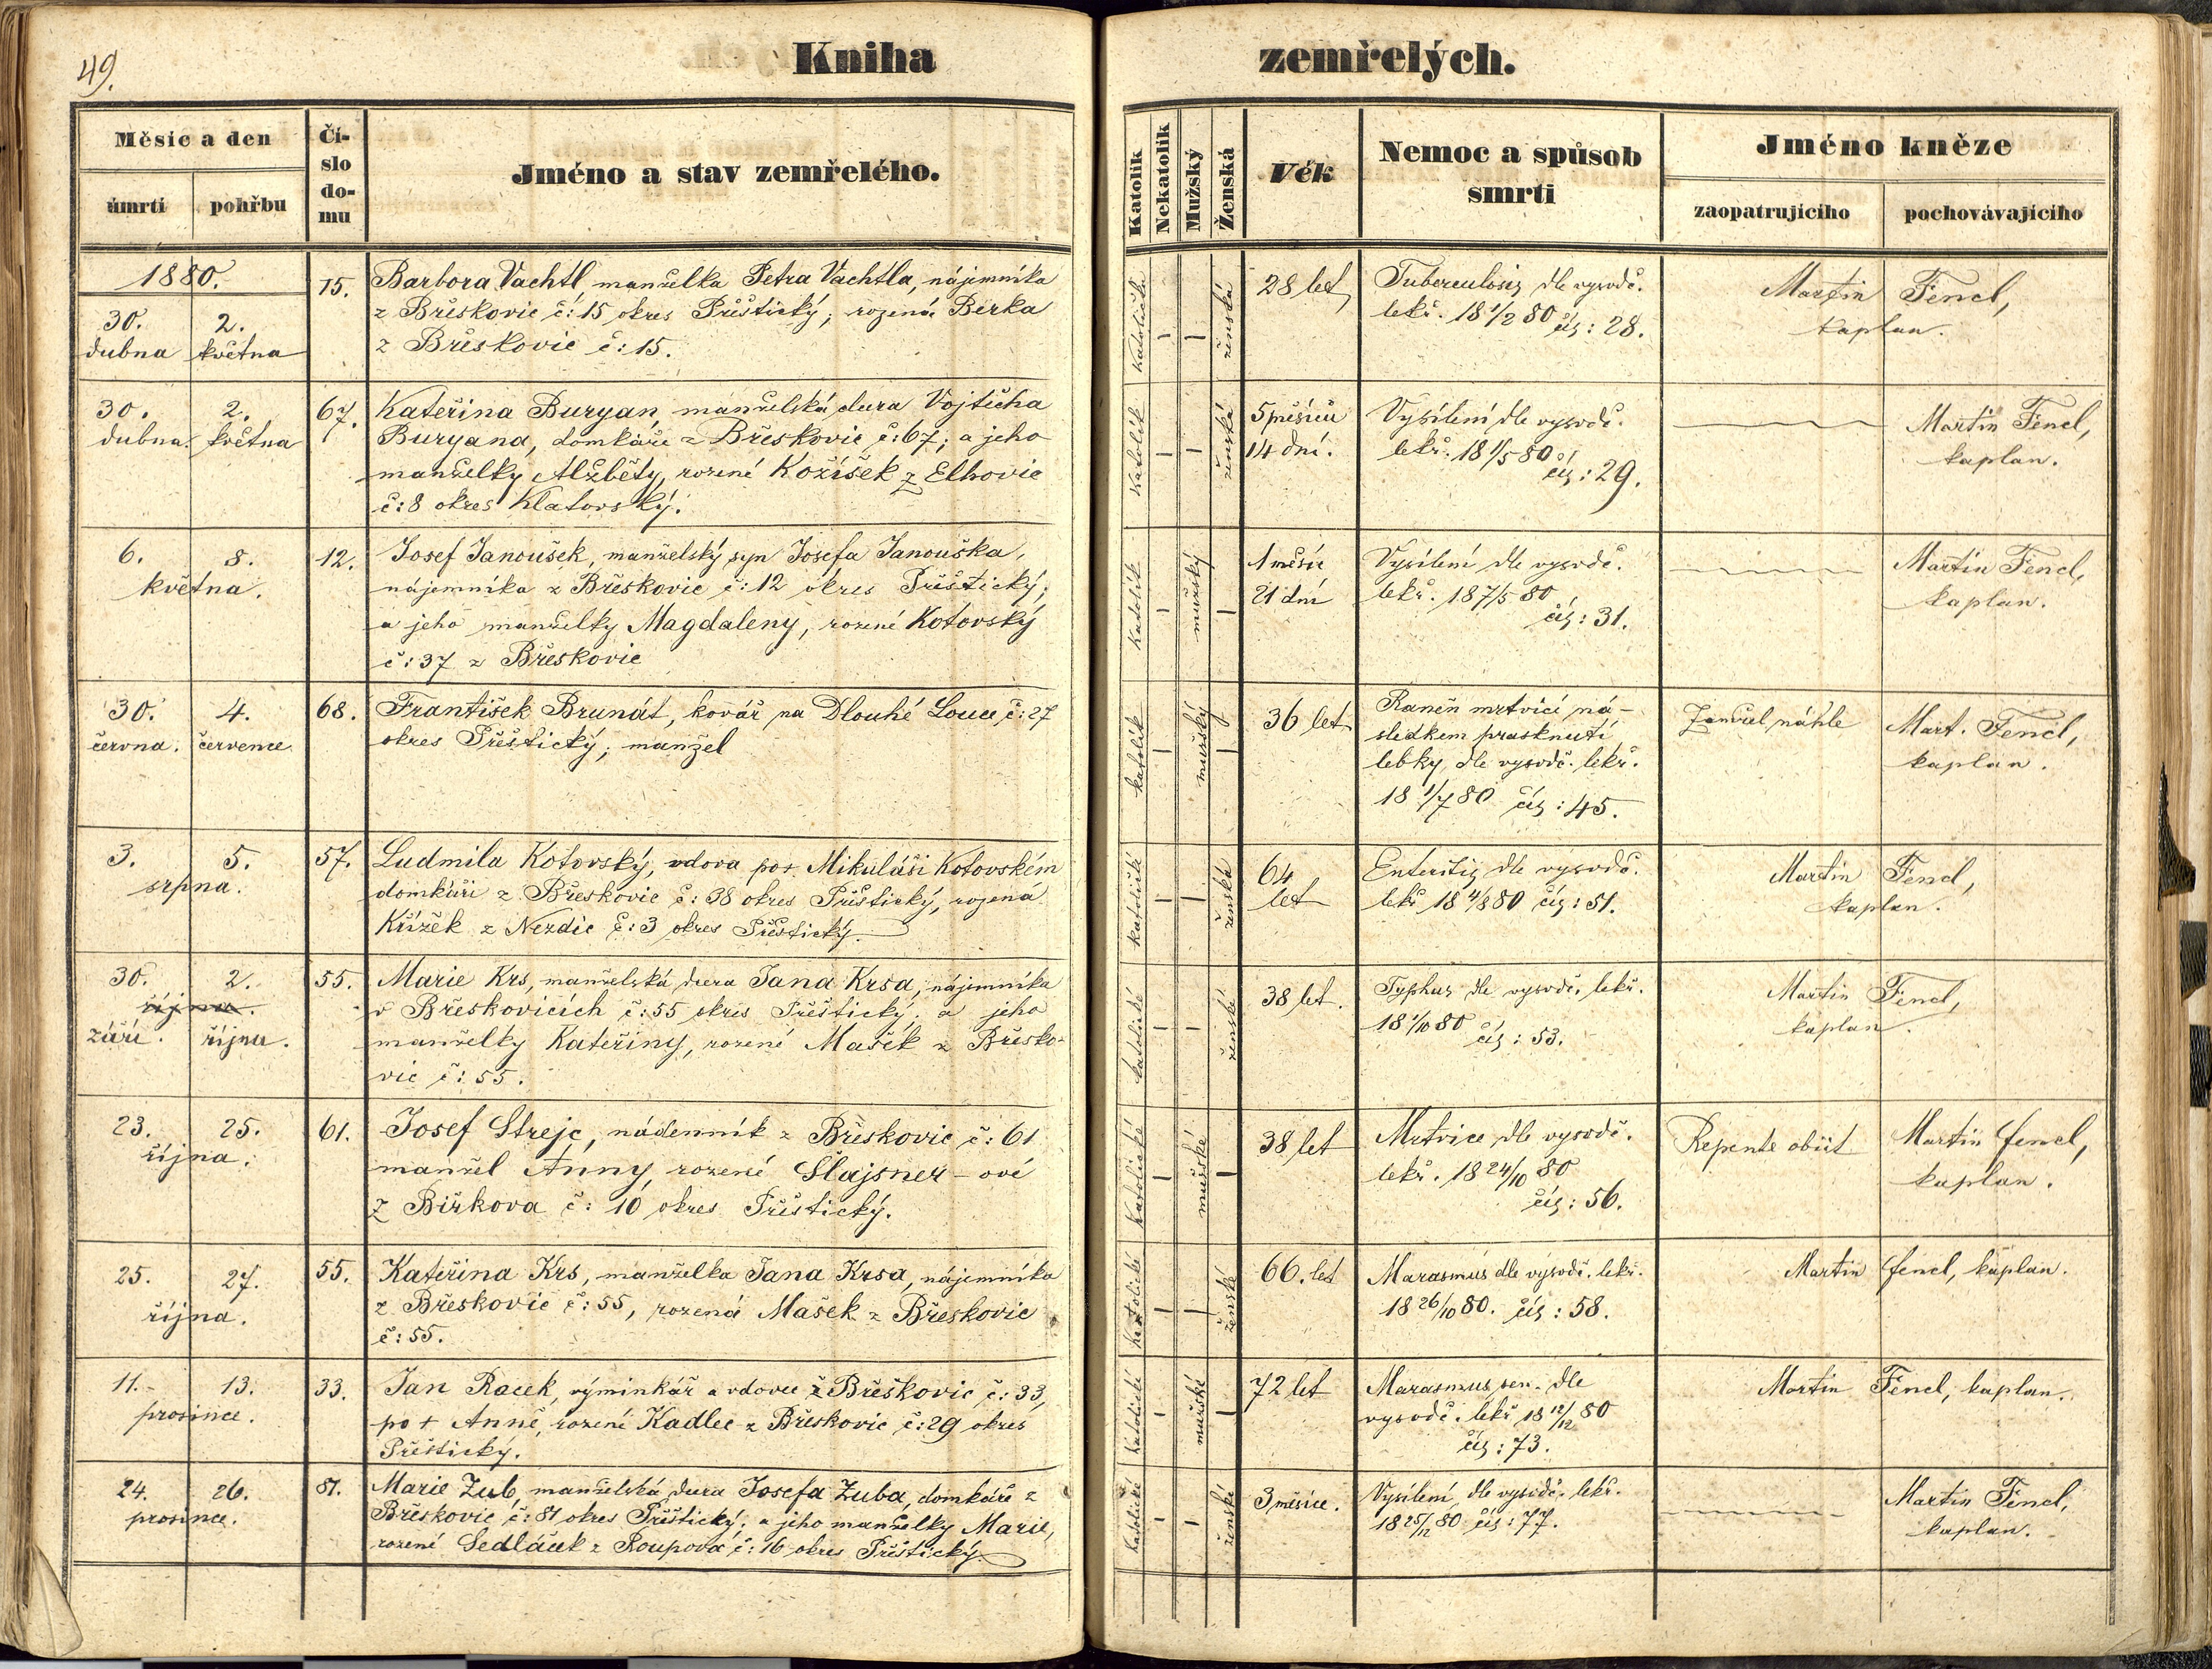 49.
Kniha zemřelých.
Měsíc a den
úmrtí
pohřbu
Čí-
slo
do-
mu
Jméno a stav zemřelého.
Katolík
Nekatolík
Mužský
Ženská
Věk
Nemoc a spůsob
smrti
Jméno kněze
zaopatrujícího
pochovávajícího
1880.
30.
dubna
2.
května
15.
Barbora Vachtl, manželka Petra Vachtla, nájemníka
z Břeskovic č: 15 okres Přeštický; rozená Berka
z Břeskovic č: 15.
katolička
—
—
ženská
28 let
Tuberculosis dle vysvdč.
lekř. 18 1/2 80 čís: 28.
Martin Fencl,
kaplan.
30.
dubna.
2.
května
67.
Kateřina Buryan, manželská dcera Vojtěcha
Buryana, domkáře z Břeskovic č: 67; a jeho
manželky Alžběty, rozené Kožíšek z Elhovic
č: 8 okres Klatovský.
katolík
—
—
ženská
5 měsíců
14 dní.
Vysílení dle vysvdč.
lekř. 18 1/5 80
čís: 29.
Martin Fencl,
kaplan.
6.
8.
května.
12.
Josef Janoušek, manželský syn Josefa Janouška,
nájemníka z Břeskovic č: 12 okres Přeštický;
a jeho manželky Magdaleny, rozené Kotovský
č: 37 z Břeskovic
katolík
—
mužský
—
1 měsíc
21 dní
Vysílení dle vysvdč.
lekř. 18 7/5 80
čís: 31.
Martin Fencl,
kaplan.
30.
června.
4.
července.
68.
František Brunát, kovář na Dlouhé Louce č: 27
okres Přeštický; manžel
katolík
—
mužský
—
36 let
Raněn mrtvicí ná-
sledkem prasknutí
lebky, dle vysvdč. lekř.
18 1/7 80 čís: 45.
Zemřel náhle
Mart. Fencl,
kaplan.
3.
5.
srpna.
57.
Ludmila Kotovský, vdova po + Mikuláši Kotovském
domkáři z Břeskovic č: 38 okres Přeštický, rozená
Křížek z Nezdic č: 3 okres Přeštický.
katolické
—
—
ženská
64
let
Enteritis dle vysvdč.
lekř 18 4/8 80 čís: 51.
Martin Fencl,
kaplan.
30.
2.
října.
září.
října.
55.
Marie Krs, manželská dcera Jana Krsa, nájemníka
v Břeskovicích č: 55 okres Přeštický; a jeho
manželky Kateřiny, rozené Mašek z Břesko-
vic č: 55.
katolické
—
—
ženské
38 let.
Typhus dle vysvdč. lekř.
18 1/10 80 čís: 53.
Martin Fencl,
kaplan.
23.
25.
října.
61.
Josef Strejc, nádenník z Břeskovic č: 61
manžel Anny, rozené Šlajsner-ové
z Birkova č: 10 okres Přeštický.
katolické
—
mužské
—
38 let
Mrtvice dle vysvdč.
lekř. 18 24/10 80
čís: 56.
Repente obiit
Martin Fencl,
kaplan.
25.
27.
října.
55.
Kateřina Krs, manželka Jana Krsa, nájemníka
z Břeskovic č: 55, rozená Mašek z Břeskovic
č: 55.
katolické
—
—
ženské
66. let
Marasmus dle vysvdč. lekř.
18 26/10 80. čís: 58.
Martin Fencl, kaplan.
11.
13.
prosince.
33.
Jan Racek, výminkář a vdovec z Břeskovic č: 33,
po + Anně, rozené Kadlec z Břeskovic č: 29 okres
Přeštický.
katolické
—
mužské
—
72 let
Marasmus sen. dle
vysvdč. lekř 18 12/12 80
čís: 73.
Martin Fencl, kaplan.
24.
26.
prosince.
81.
Marie Zub, manželská dcera Josefa Zuba, domkáře z
Břeskovic č: 81 okres Přeštický; a jeho manželky Marie,
rozené Sedláček z Roupova č: 16 okres Přeštický.
katolické
—
—
ženské
3 měsíce.
Vysílení dle vysvdč. lekř.
18 25/12 80 čís: 77.
Martin Fencl,
kaplan.